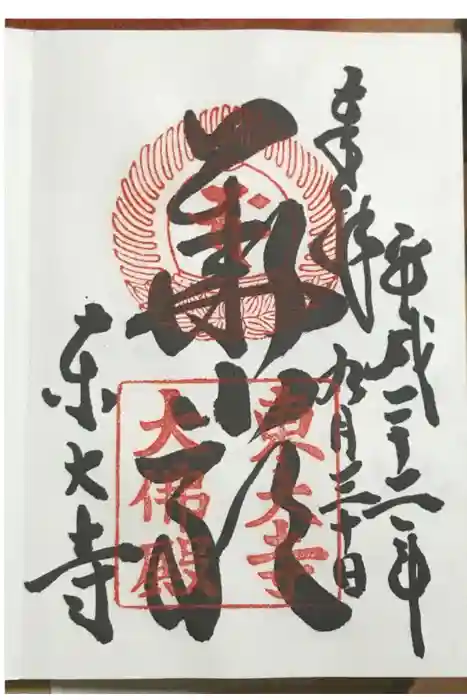 奉拝
平成二十二年
九月三十日
華厳
東大寺
東大寺
大佛殿